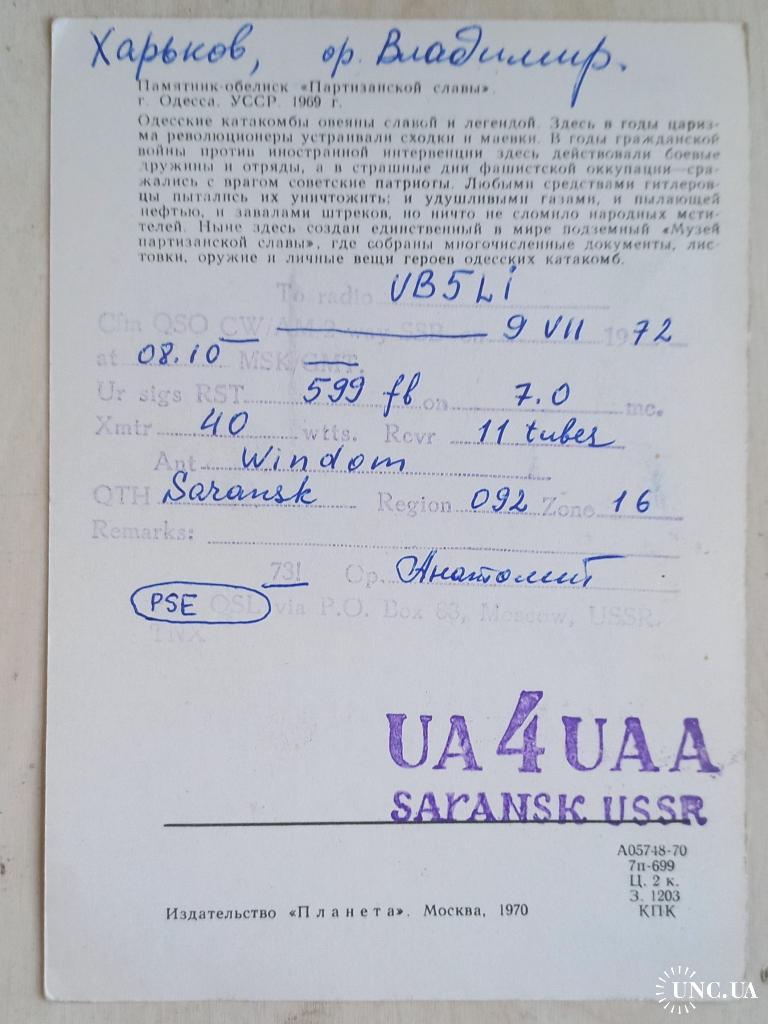 Харьков, ор. Владимир.
Памятник-обелиск «Партизанской славы».
г. Одесса. УССР. 1969 г.
Одесские катакомбы овеяны славой и легендой. Здесь в годы цариз-
ма революционеры устраивали сходки и маевки. В годы гражданской
войны против иностранной интервенции здесь действовали боевые
дружины и отряды, а в страшные дни фашистской оккупации сра-
жались с врагом советские патриоты. Любыми средствами гитлеров-
цы пытались их уничтожить: и удушливыми газами, и пылающей
нефтью, и завалами штреков, но ничто не сломило народных мсти-
телей. Ныне здесь создан единственный в мире подземный «Музей
партизанской славы», где собраны многочисленные документы, лис-
товки, оружие и личные вещи героев одесских катакомб.
To radio UB5Li
Cfm QSO CW/AM 2 way SSB on 9 VII 1972
at 08.10 MSK/GMT.
Ur sigs RST 599 fb on 7.0 mc.
Xmtr 40 wtts. Rcvr 11 tubes
Ant Windom
QTH Saransk Region 092 Zone 16
Remarks:
731 Op. Анатолий
PSE QSL via P.O. Box 88, Moscow, USSR.
TNX
UA4UAA
SARANSK USSR
А05748-70
7п-699
Ц. 2 к.
З. 1203
КПК
Издательство «Планета». Москва, 1970
UNC.UA